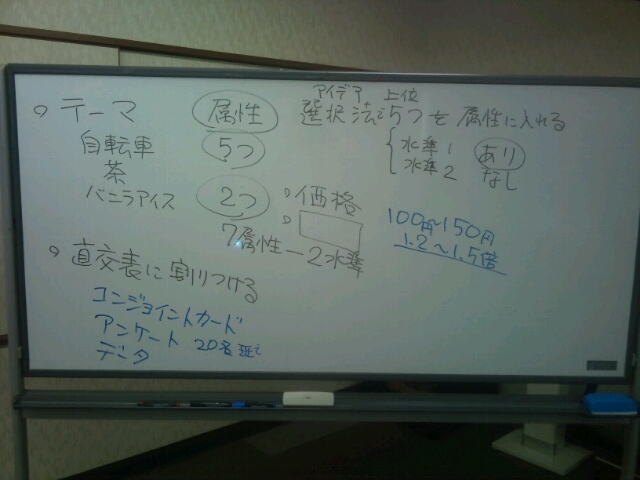 ○ テーマ 属性
自転車 5つ
茶
バニラアイス 2つ ○ 価格
○
7属性ー2水準
アイデア 上位
選択法で5つを属性に入れる
水準1 あり
水準2 なし
100円〜150円
1.2〜1.5倍
○ 直交表に割りつける
コンジョイントカード
アンケート 20名
データ